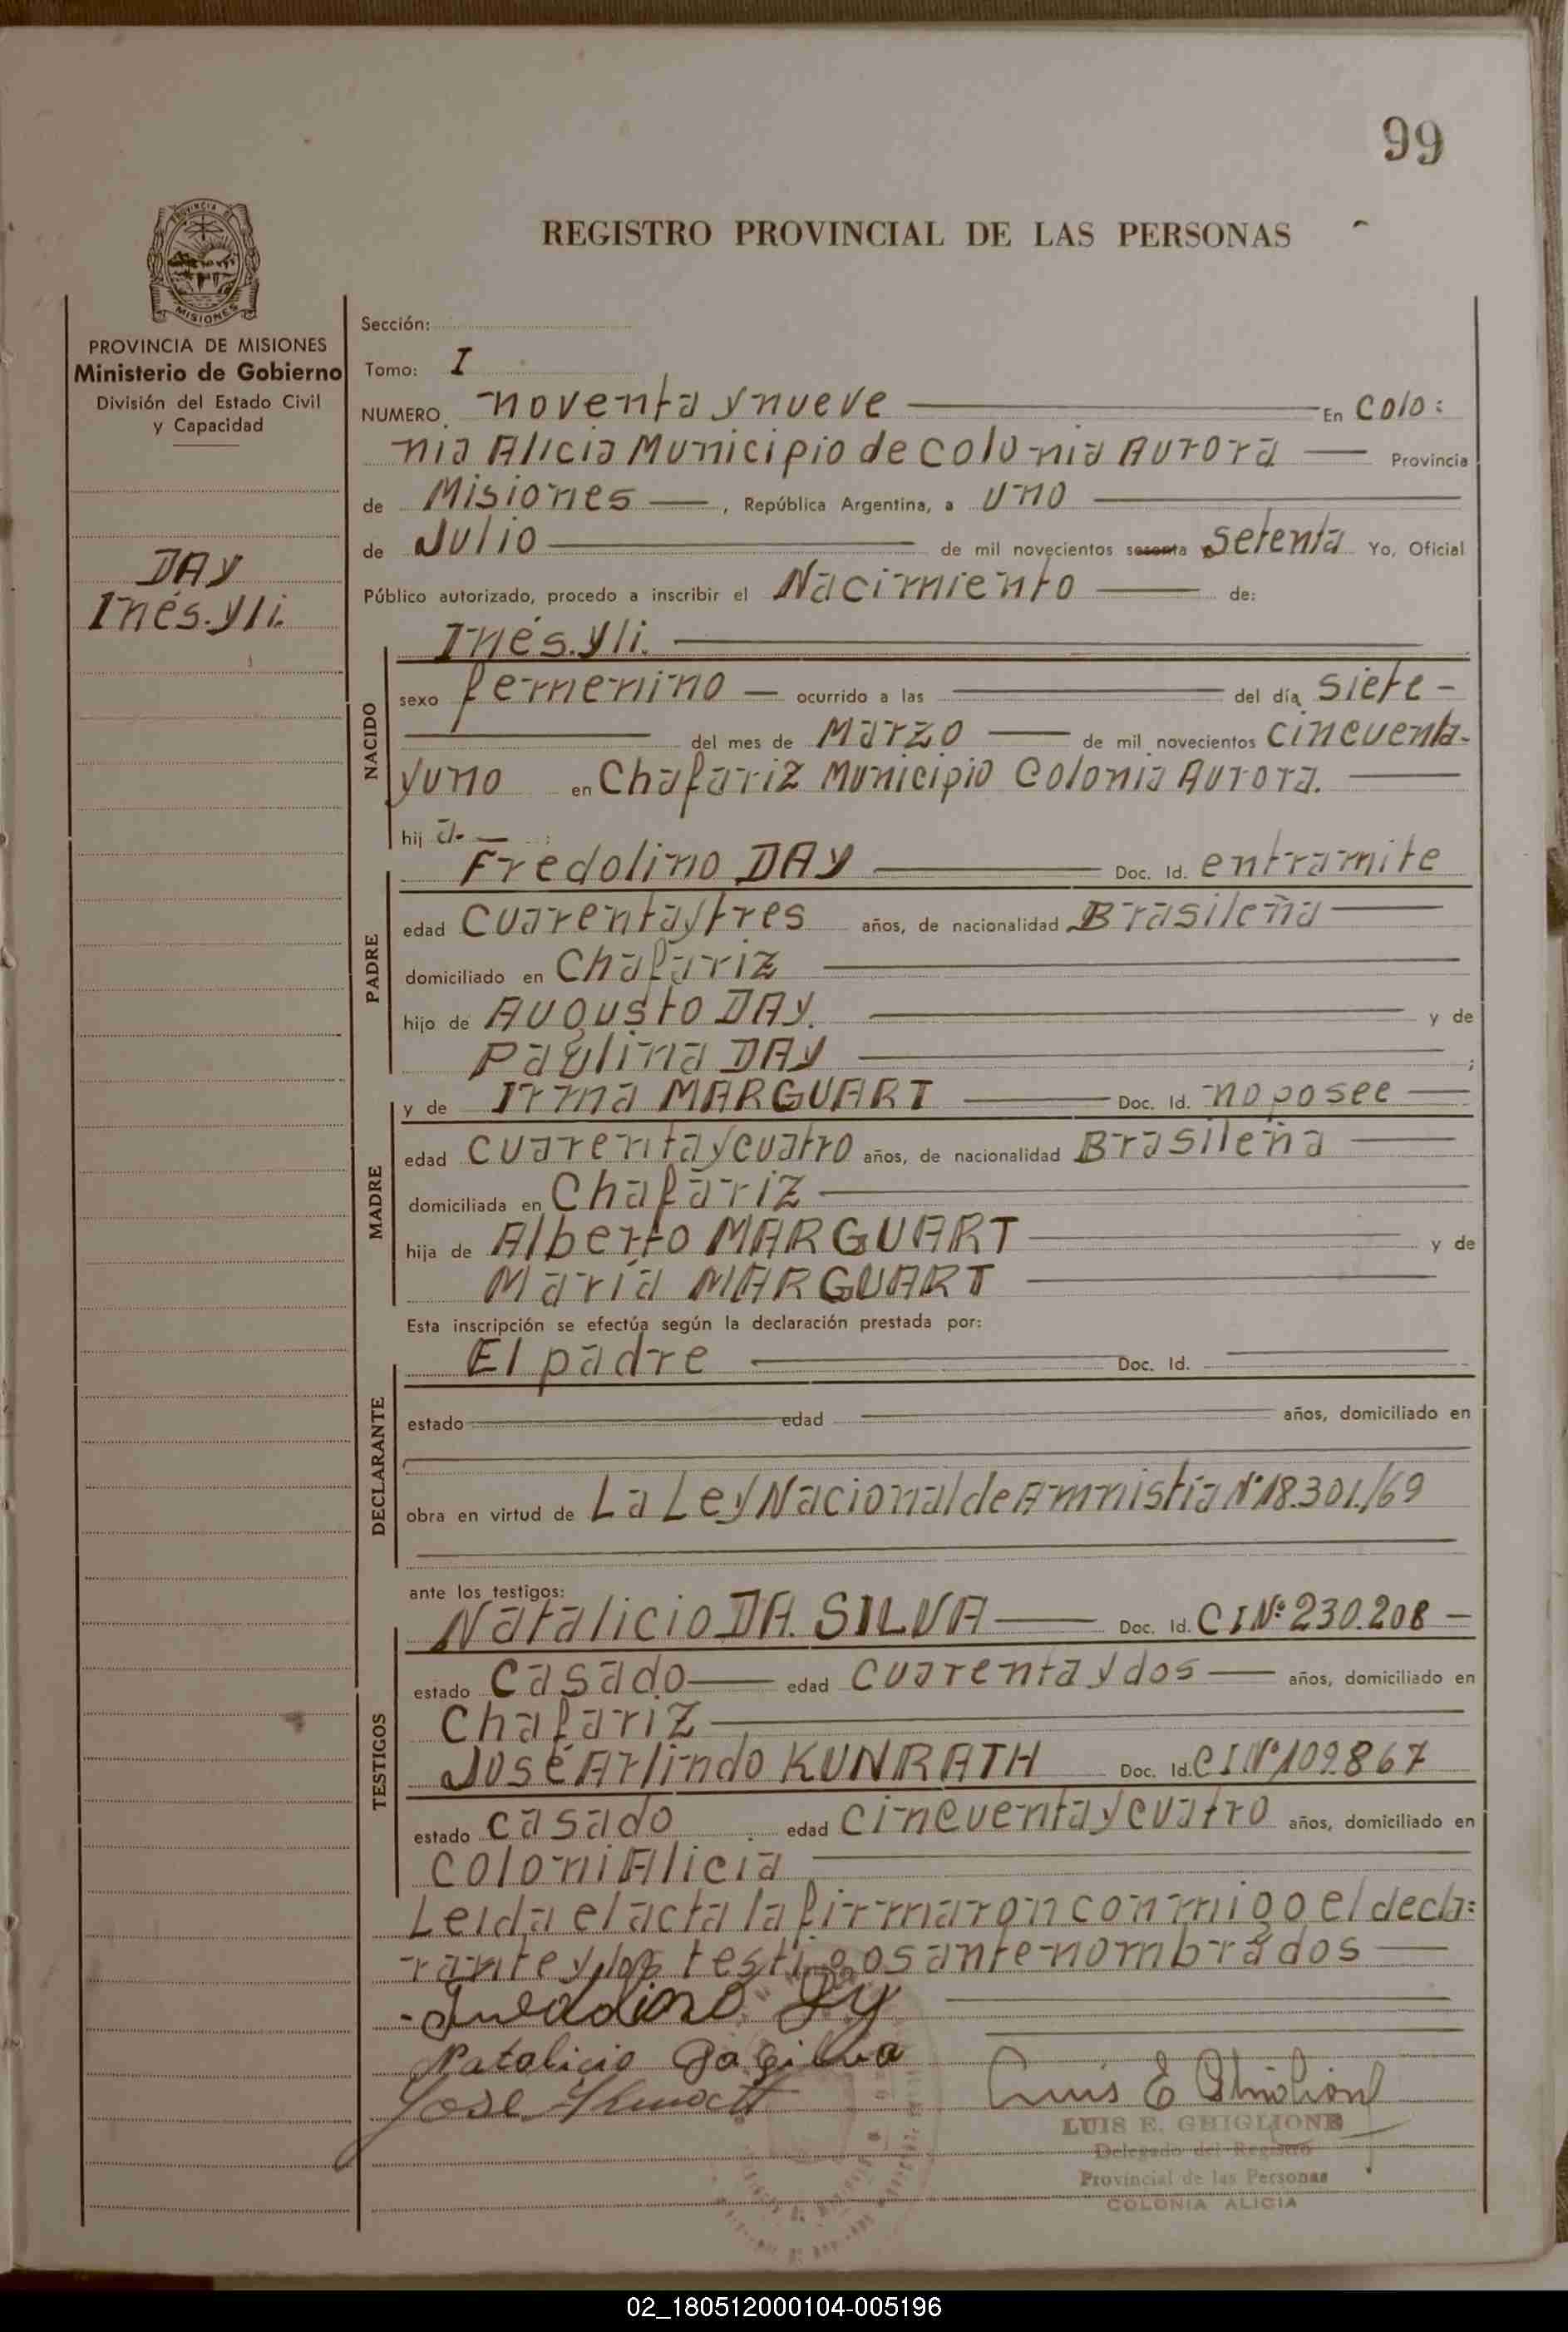 99
REGISTRO PROVINCIAL DE LAS PERSONAS
PROVINCIA DE
MISIONES
PROVINCIA DE MISIONES
Ministerio de Gobierno
División del Estado Civil
y Capacidad
DAY
Inés.Yli.
Sección:
Tomo: I
NUMERO noventa y nueve En Colo:
nia Alicia Municipio de Colonia Aurora Provincia
de Misiones, República Argentina, a uno
de Julio de mil novecientos sesenta y setenta Yo, Oficial
Público autorizado, procedo a inscribir el Nacimiento de:
Inés.Yli.
NACIDO
sexo femenino ocurrido a las del día siete
del mes de Marzo de mil novecientos cincuenta
y uno en Chafariz Municipio Colonia Aurora.
hij a.
PADRE
Fredolino DAY Doc. Id. en tramite
edad cuarenta y tres años, de nacionalidad Brasileña
domiciliado en Chafariz
hijo de Augusto DAY. y de
Paulina DAY ;
MADRE
y de Irma MARGUART Doc. Id. no posee
edad cuarenta y cuatro años, de nacionalidad Brasileña
domiciliada en Chafariz
hija de Alberto MARGUART y de
María MARGUART
Esta inscripción se efectúa según la declaración prestada por:
DECLARANTE
El padre Doc. Id.
estado edad años, domiciliado en
obra en virtud de La Ley Nacional de Amnistía Nº 18.301./69
ante los testigos:
TESTIGOS
Natalicio DA. SILVA Doc. Id. C I Nº 230.208
estado casado edad cuarenta y dos años, domiciliado en
Chafariz
José Arlindo KUNRATH Doc. Id. C I Nº 109.867
estado casado edad cincuenta y cuatro años, domiciliado en
Coloni Alicia
Leida el acta la firmaron conmigo el decla:
rante y los testigos antenombrados
Natalicio Da Silva
Jose
Luis E
LUIS E. GHIGLIONE
Delegado del Registro
Provincial de las Personas
COLONIA ALICIA
02_180512000104-005196